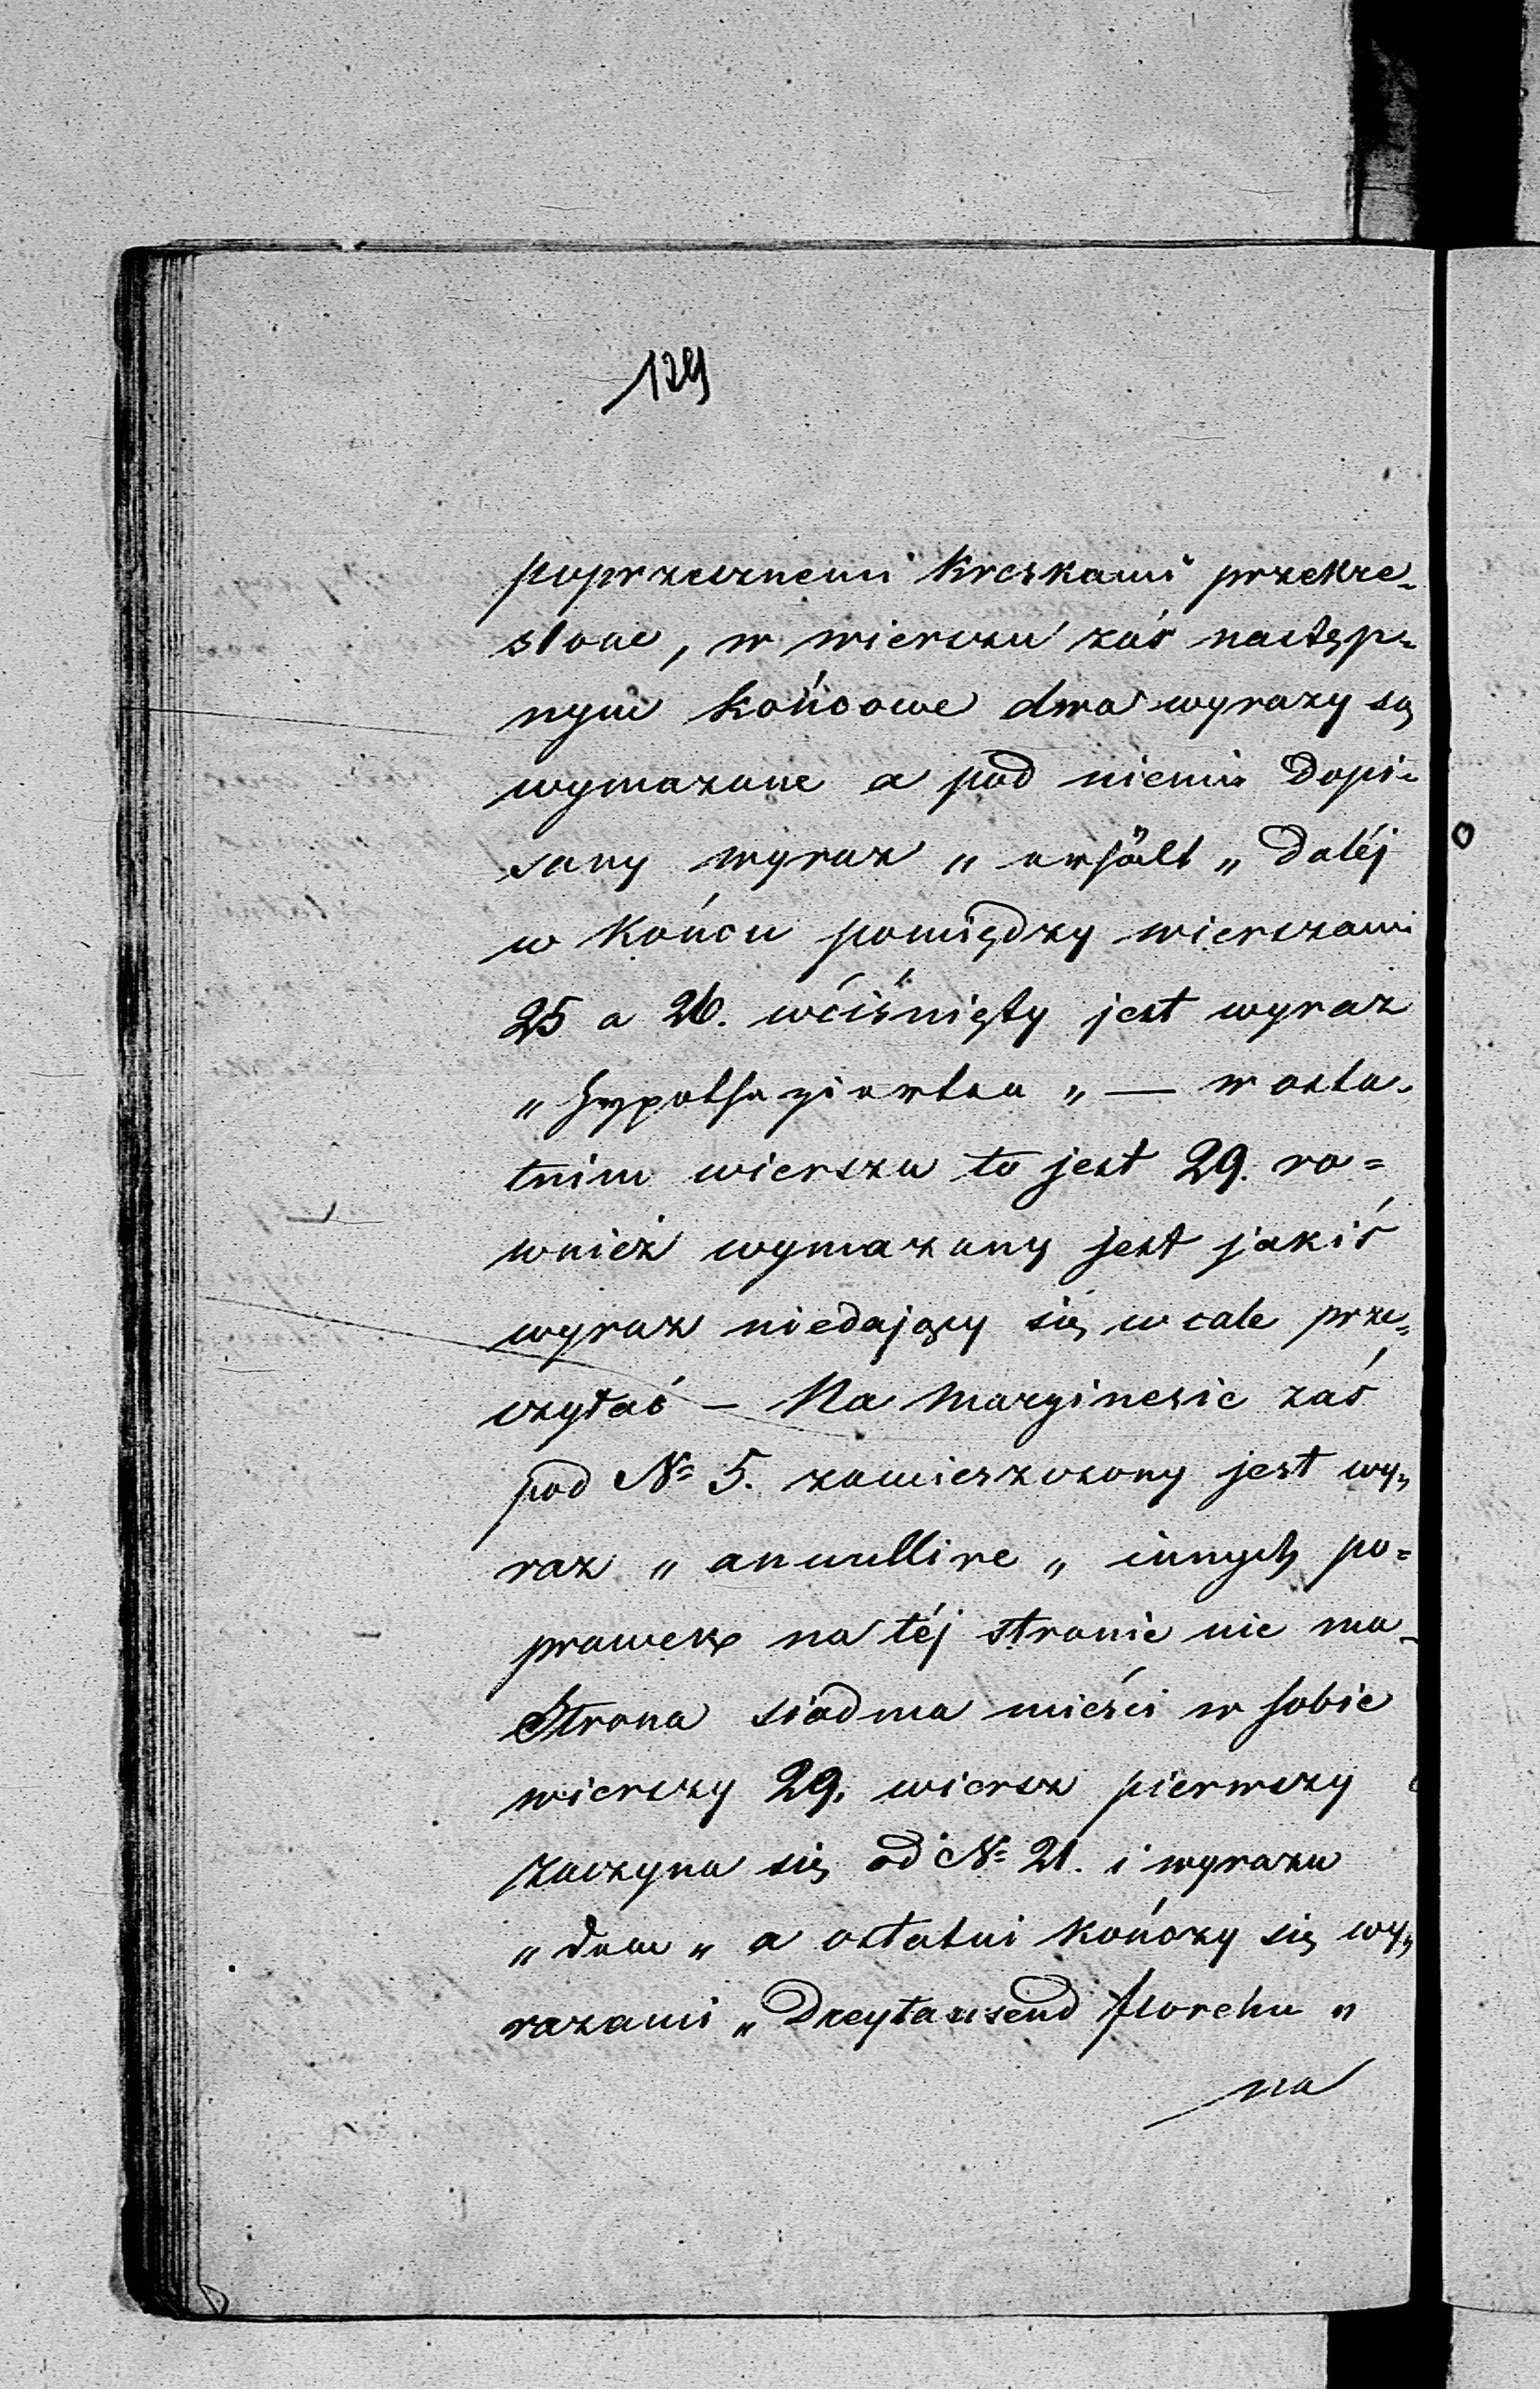 129
poprzecznemi kreskami przekre-
slone, w wierszu zaś następ=
nym końcowe dwa wyrazy są
wymazane a pod niemi dopi=
sany wyraz „ erhält „ daléj
w końcu pomiędzy wierszami
25 a 26. wciśnięty jest wyraz
„ hypothezirten „ — w osta-
tnim wierszu to jest 29. ro=
wnież wymazany jest jakiś
wyraz niedający się wcale prze=
czytać – Na marginesie zaś
pod No 5. zamieszczony jest wy=
raz „ anullire „ innych po=
prawek na téj stronie nie ma -
Strona siódma mieści w sobie
wierszy 29. wiersz pierwszy
zaczyna się od No 21. i wyrazu
„ dem „ a ostatni kończy się wy=
razami „ Dreytausend
na